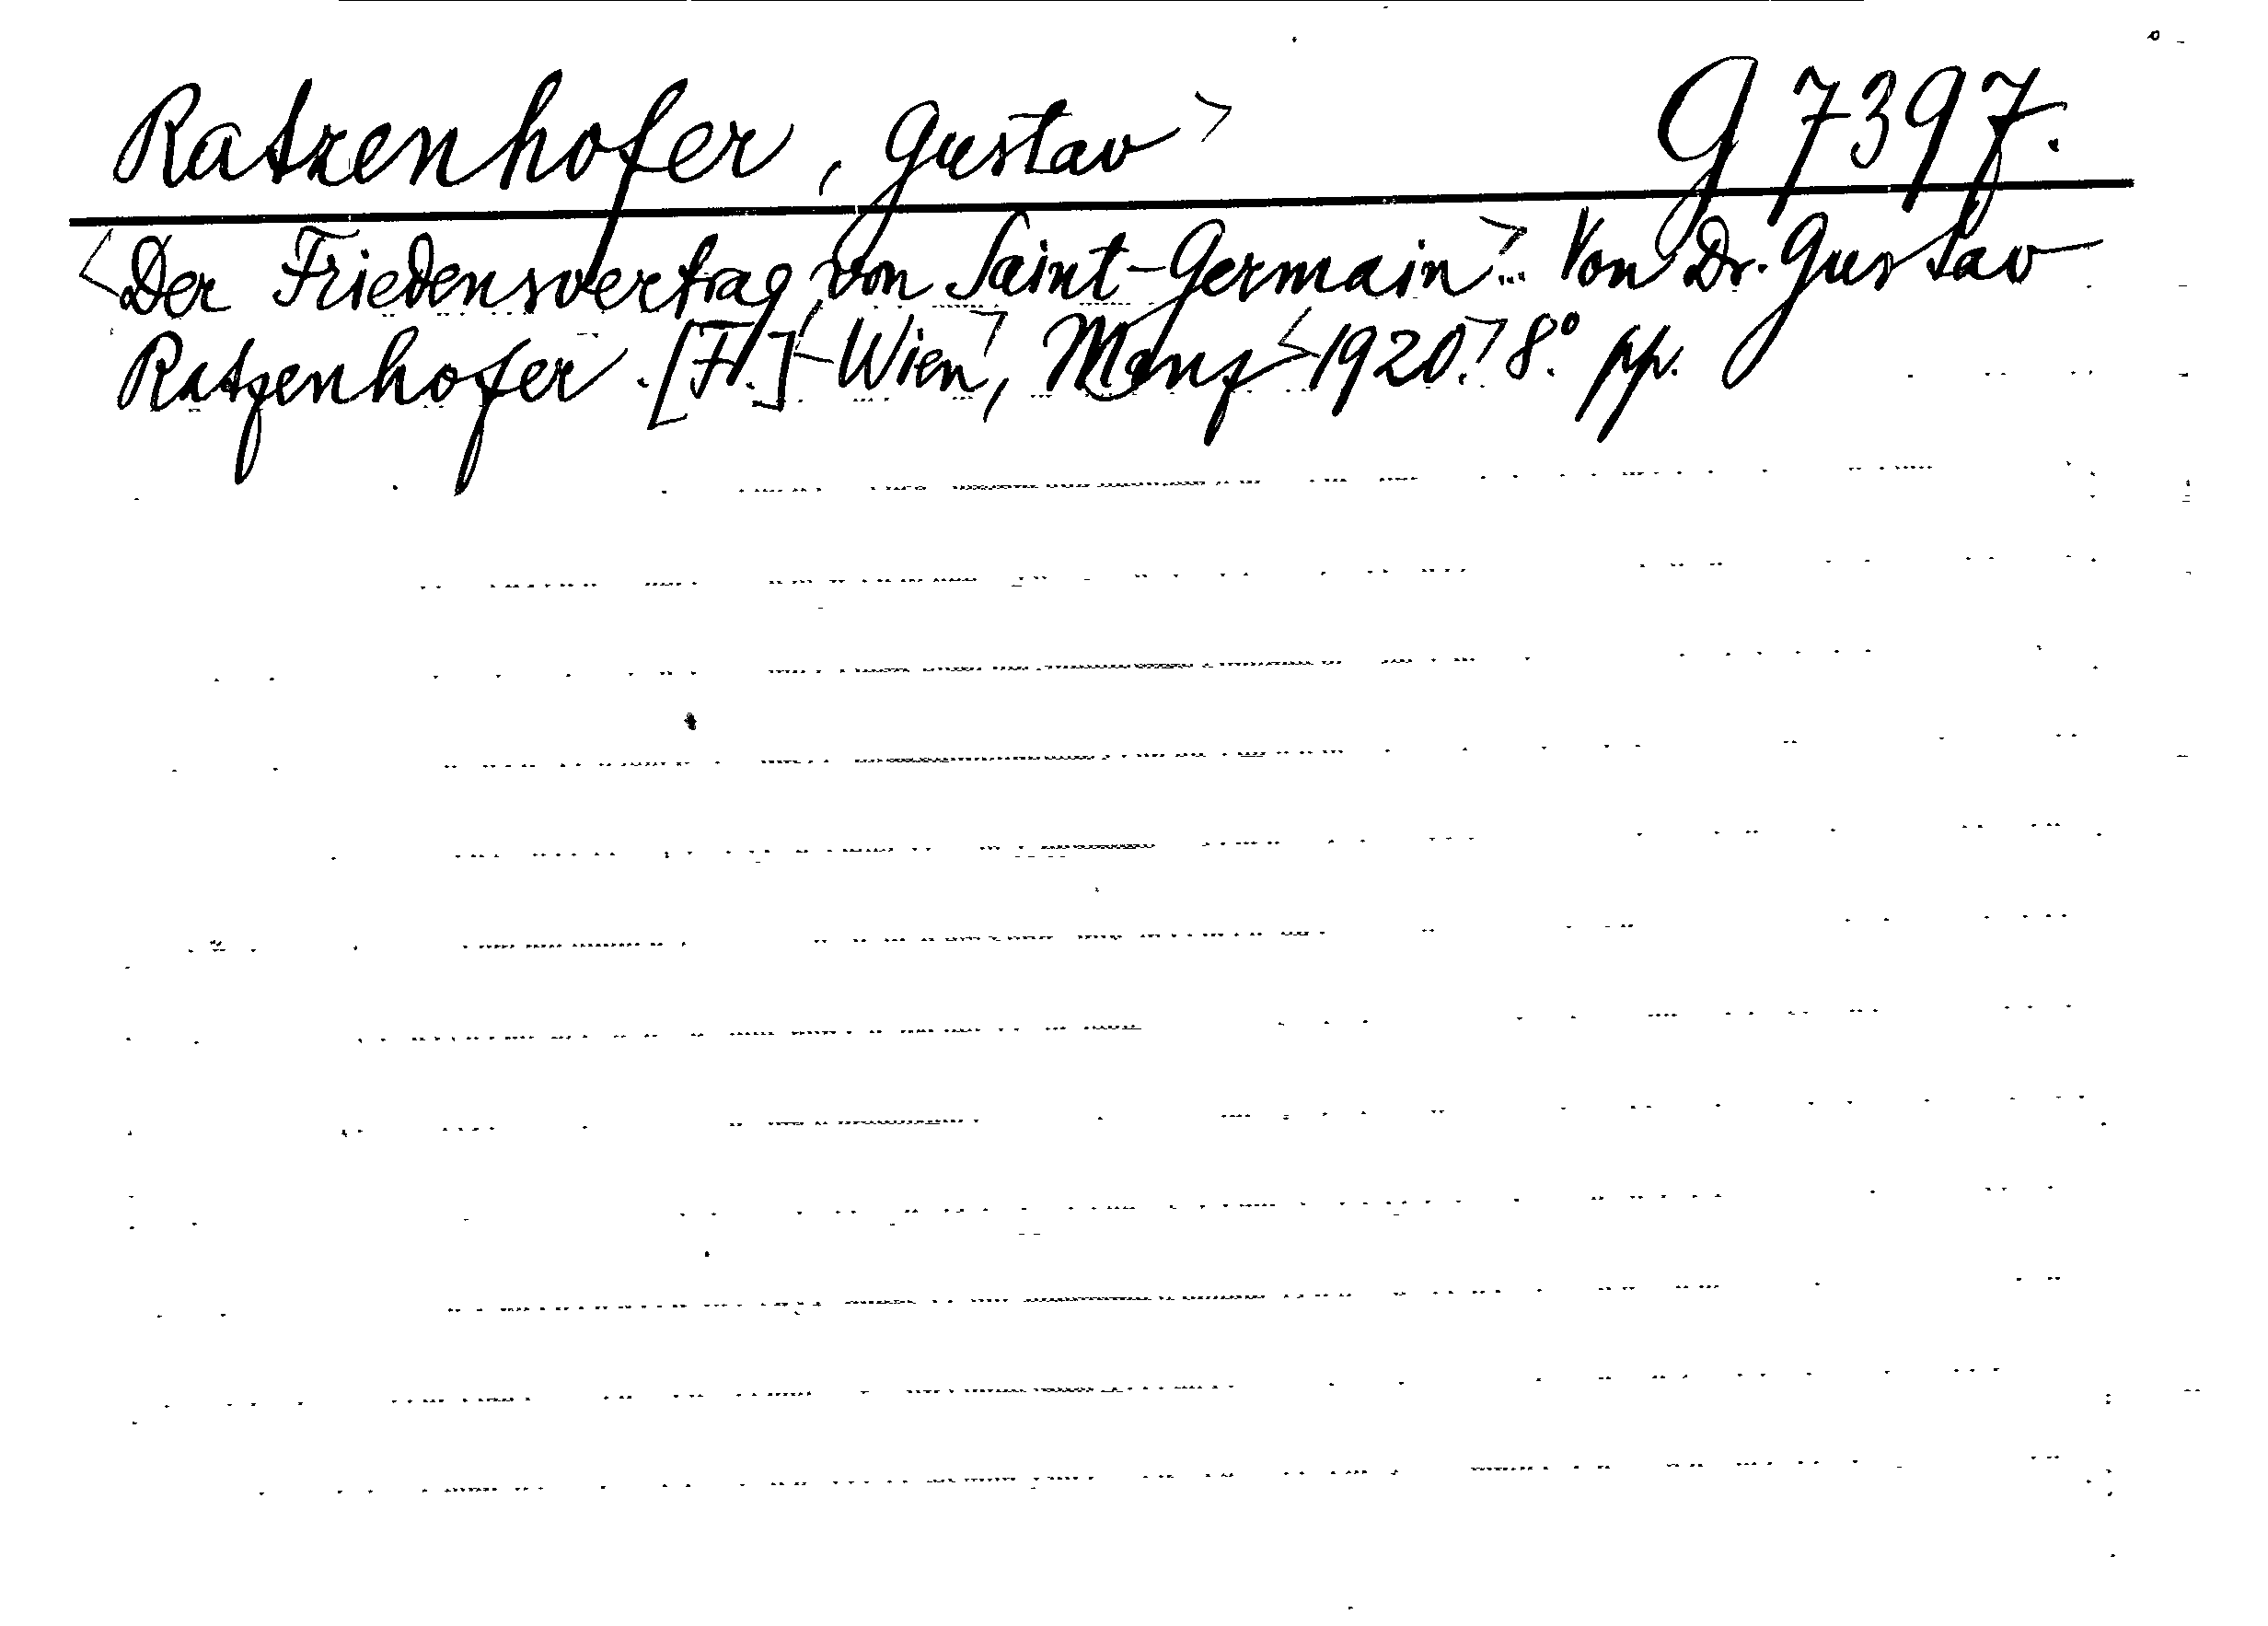 Ratzenhofer, Gustav> G 7397.
<Der Friedensvertrag von Saint-Germain>... Von Dr. Gustav
Ratzenhofer. [Fl.] <Wien>, Manz <1920.> 8.° pp.